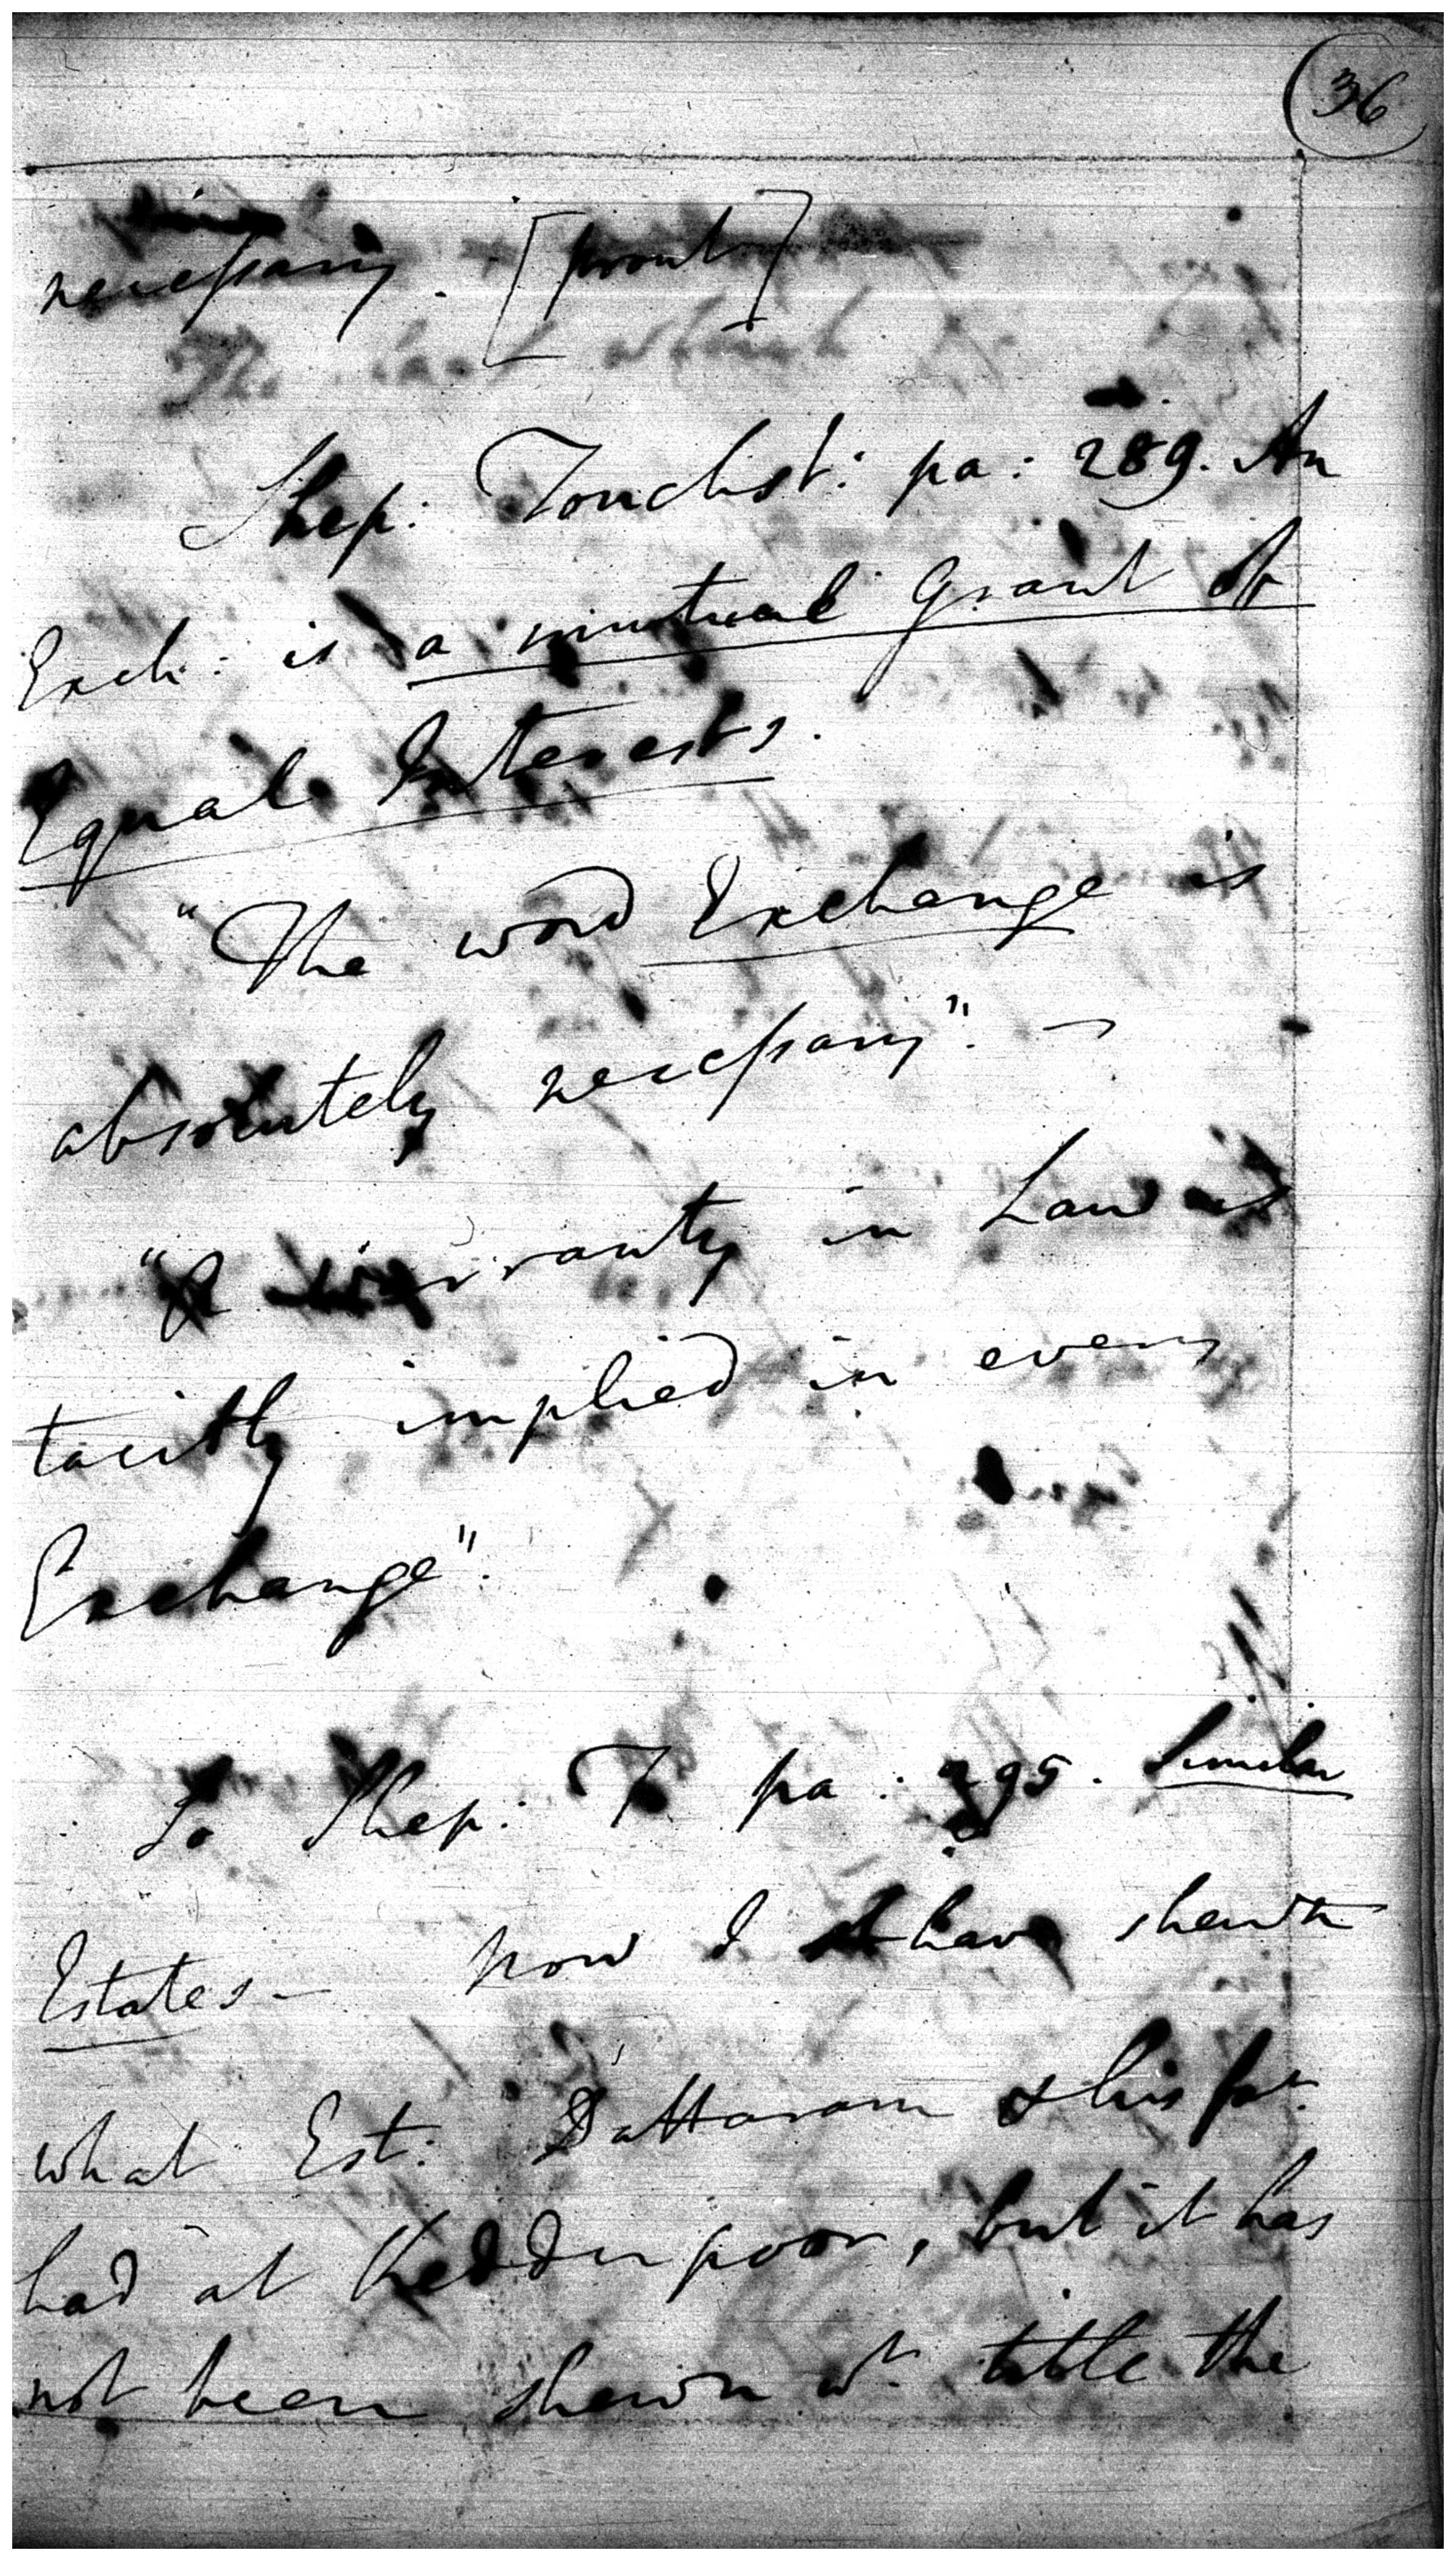 36
necessary. [
Shep: Touchst: pa: 289. An
Exch: is a mutual Grant of
Equal Interests.
"The word Exchange is
absolutely necessary". —
"A Warranty in Law is
tacitly implied in every
Exchange".
So Shep: T pa: 295. Similar
Estates — Now I have shewn
what Est: Dattaram & his far
had at Kedderpoor, but it has
not been shewn wt title the